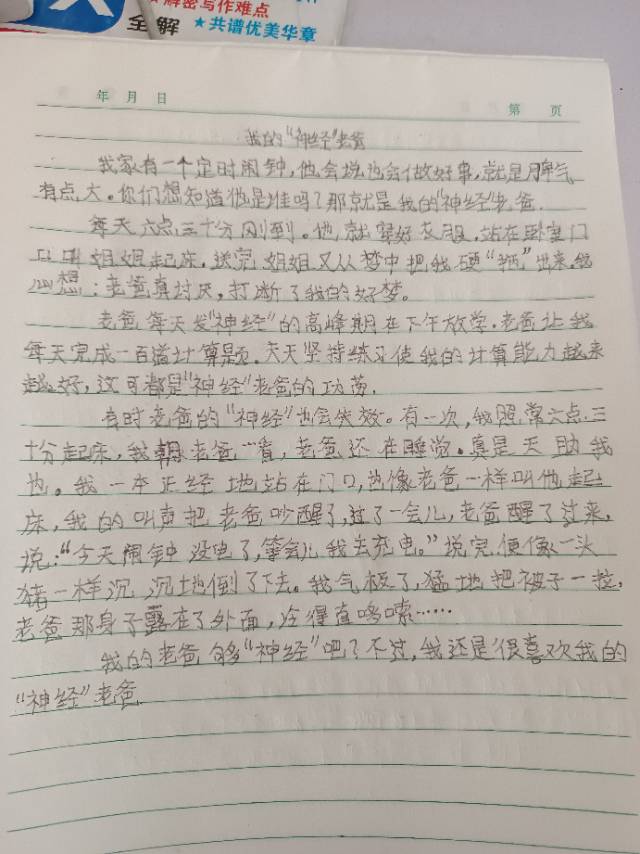 解密写作难点
全解 ★共谱优美华章
年 月 日
第 页
我的“神经”老爸
我家有一个定时闹钟,他会说也会做好事,就是脾气
有点大。你们想知道他是谁吗?那就是我的“神经”老爸.
每天六点三十分刚到。他就穿好衣服,站在卧室门
口叫姐姐起床,送完姐姐又从梦中把我硬“拖”出来,我
心想:老爸真讨厌,打断了我的好梦。
老爸每天发“神经”的高峰期在下午放学.老爸让我
每天完成一百道计算题.天天坚持练习使我的计算能力越来
越好,这可都是“神经”老爸的功劳.
有时老爸的“神经”也会失效。有一次,我照常六点三
十分起床,我朝老爸一看,老爸还在睡觉。真是天助我
也。我一本正经地站在门口,当像老爸一样叫他起
床,我的叫声把老爸吵醒了,过了一会儿,老爸醒了过来,
说:“今天闹钟没电了,等会儿我去充电。”说完,便像一头
猪一样沉沉地倒了下去。我气极了,猛地把被子一拉,
老爸那身子露在了外面,冷得直哆嗦……
我的老爸够“神经”吧?不过,我还是很喜欢我的
“神经”老爸.